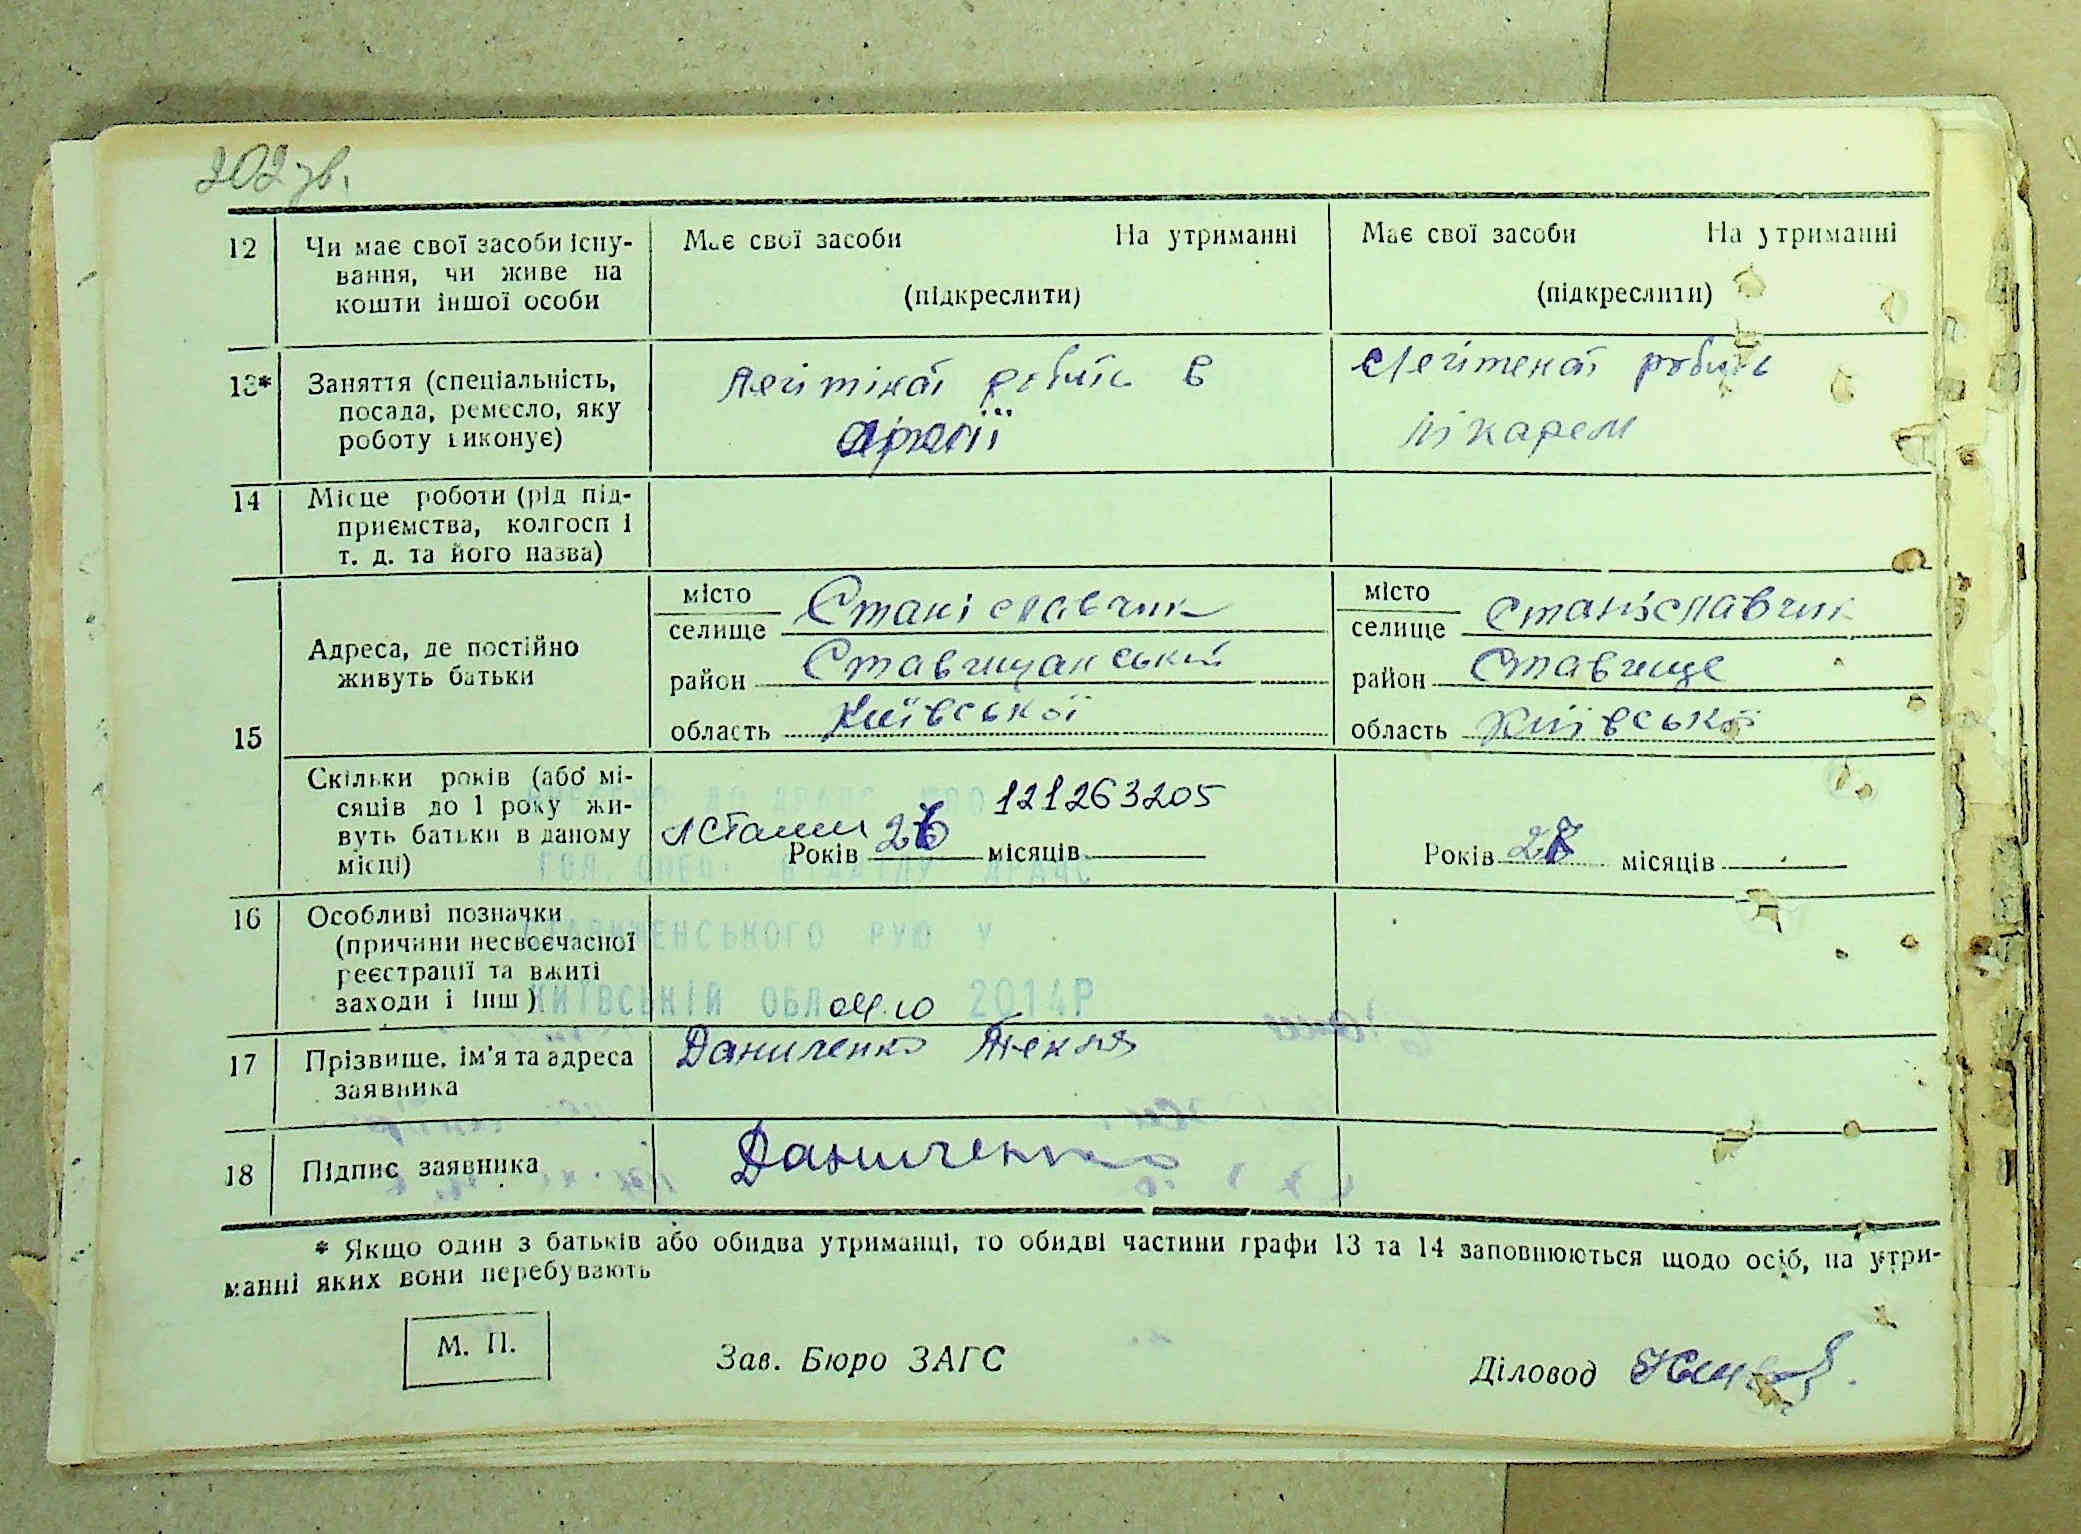 202 зв.
12 Чи має свої засоби існу- Має свої засоби На утриманні Має свої засоби На утриманні
вання, чи живе на
кошти іншої особи (підкреслити) (підкреслити)
13* Заняття (спеціальність, робить в робить
посада, ремесло, яку армії лікарем
роботу виконує)
14 Місце роботи (рід під-
приємства, колгосп і
т. д. та його назва)
15 Адреса, де постійно
живуть батьки
місто Станіславчик місто Станіславчик
селище селище
район Ставищанський район Ставище
область Київської область Київської
Скільки років (або мі-
сяців до 1 року жи-
вуть батьки в даному
місці)
121263205
Років 26 місяців Років 27 місяців
ГОЛ. СПЕЦ. ВІДДІЛУ ДРАЦС
16 Особливі позначки
(причини несвоєчасної
реєстрації та вжиті
заходи і інш)
СТАВИЩЕНСЬКОГО РУЮ У
КИЇВСЬКІЙ ОБЛ 04.10 2014Р
17 Прізвище, ім'я та адреса Даниленко Текля
заявника
18 Підпис заявника Даниленко
* Якщо один з батьків або обидва утриманці, то обидві частини графи 13 та 14 заповнюються щодо осіб, на утри-
манні яких вони перебувають
М. П. Зав. Бюро ЗАГС Діловод